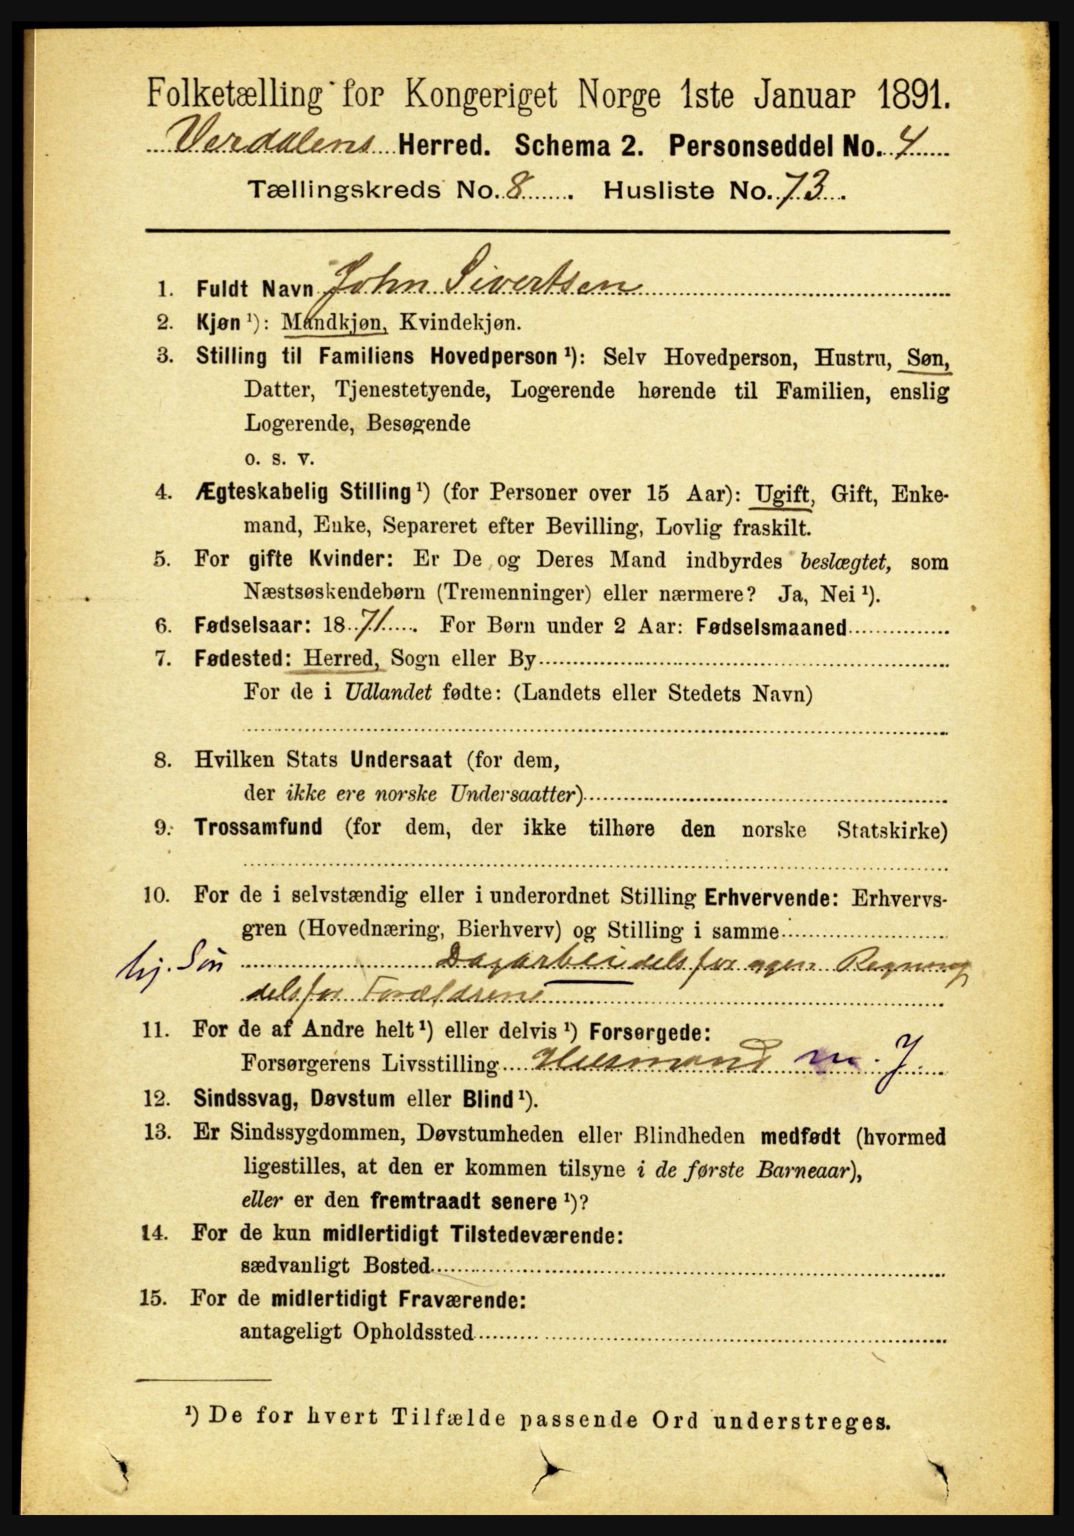 Folketælling for Kongeriget Norge 1ste Januar 1891.
Verdalens Herred. Schema 2. Personseddel No. 4
Tællingskreds No. 8. Husliste No. 73.
1. Fuldt Navn John Sivertsen
2. Kjøn ¹): Mandkjøn, Kvindekjøn.
3. Stilling til Familiens Hovedperson ¹): Selv Hovedperson, Hustru, Søn,
Datter, Tjenestetyende, Logerende hørende til Familien, enslig
Logerende, Besøgende
o. s. v.
4. Ægteskabelig Stilling ¹) (for Personer over 15 Aar): Ugift, Gift, Enke-
mand, Enke, Separeret efter Bevilling, Lovlig fraskilt.
5. For gifte Kvinder: Er De og Deres Mand indbyrdes beslægtet, som
Næstsøskendebørn (Tremenninger) eller nærmere? Ja, Nei ¹).
6. Fødselsaar: 1871. For Børn under 2 Aar: Fødselsmaaned
7. Fødested: Herred, Sogn eller By
For de i Udlandet fødte: (Landets eller Stedets Navn)
8. Hvilken Stats Undersaat (for dem,
der ikke ere norske Undersaatter)
9. Trossamfund (for dem, der ikke tilhøre den norske Statskirke)
10. For de i selvstændig eller i underordnet Stilling Erhvervende: Erhvervs-
gren (Hovednæring, Bierhverv) og Stilling i samme
hj. Søn Dagarbei dels for egen Regning
dels for Forældrene
11. For de af Andre helt ¹) eller delvis ¹) Forsørgede:
Forsørgerens Livsstilling Husmand m. J.
12. Sindssvag, Døvstum eller Blind ¹).
13. Er Sindssygdommen, Døvstumheden eller Blindheden medfødt (hvormed
ligestilles, at den er kommen tilsyne i de første Barneaar),
eller er den fremtraadt senere ¹)?
14. For de kun midlertidigt Tilstedeværende:
sædvanligt Bosted
15. For de midlertidigt Fraværende:
antageligt Opholdssted
¹) De for hvert Tilfælde passende Ord understreges.